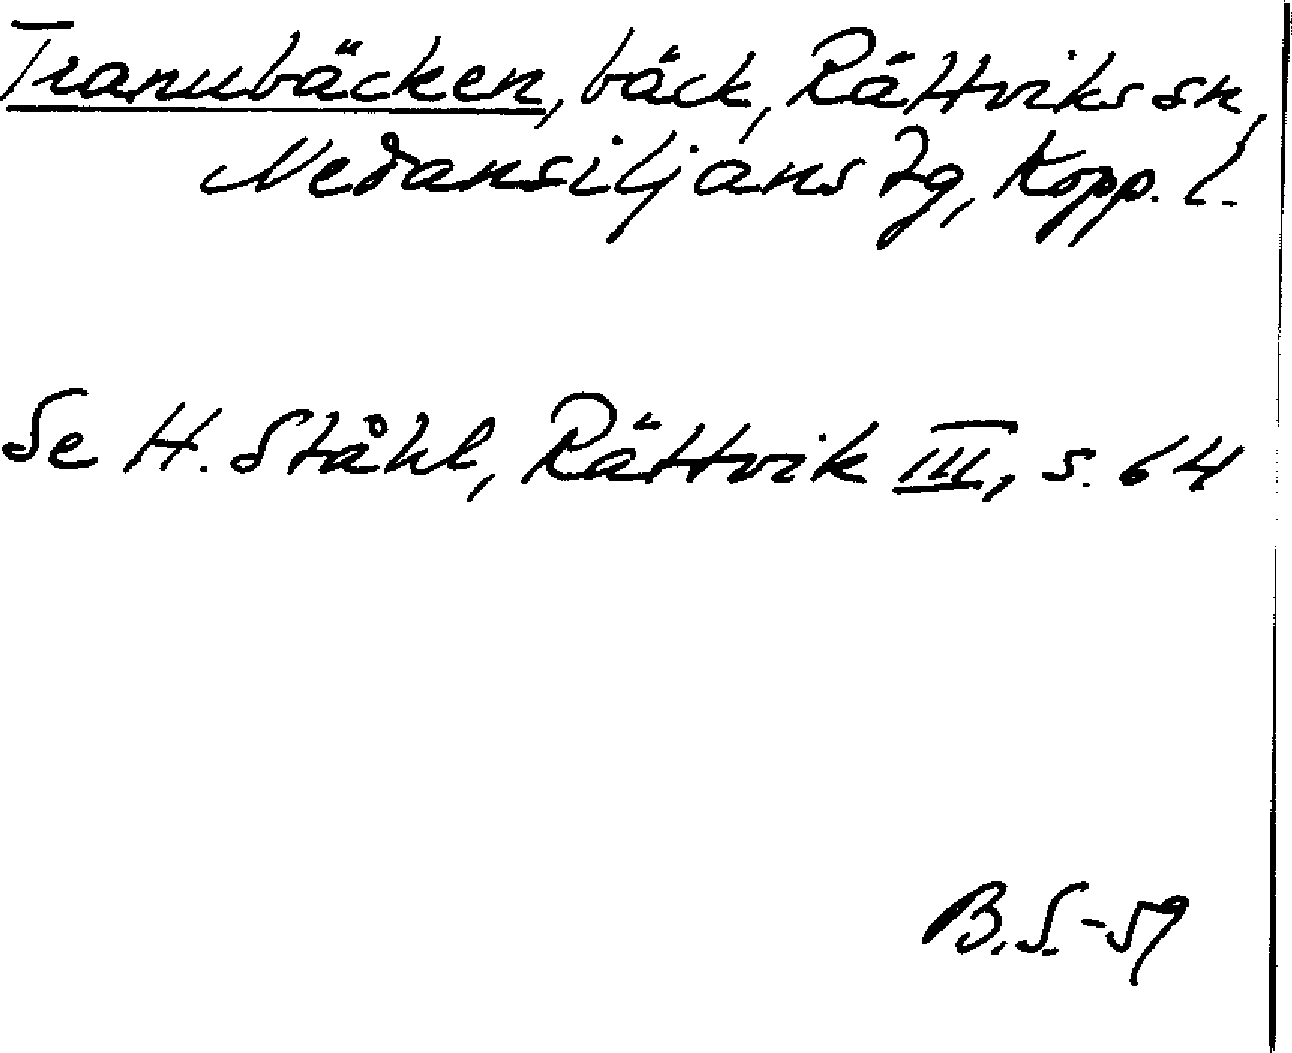 Tranubäcken, bäck, Rättviks sn,
Nedansiljans tg, Kopp. l.
Se H. Ståhl, Rättvik III, s. 64
B.S.-59